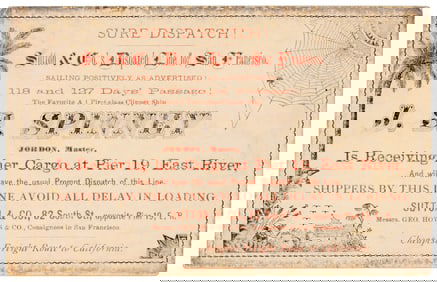 SURE DISPATCH!
Sutton & Co.'s Dispatch Line for San Francisco.
SAILING POSITIVELY AS ADVERTISED!
118 and 127 Days' Passage!
The Favorite A 1 First-class Clipper Ship
J. SPINNEY
JORDON, Master,
Is Receiving her Cargo at Pier 19, East River
And will have the usual Prompt Dispatch of this Line.
SHIPPERS BY THIS LINE AVOID ALL DELAY IN LOADING.
SUTTON & CO., 82 South St., opposite Pier 19, E. R.
Messrs. GEO. & CO., Consignees in San Francisco.
Cheapest Freight Route to California.